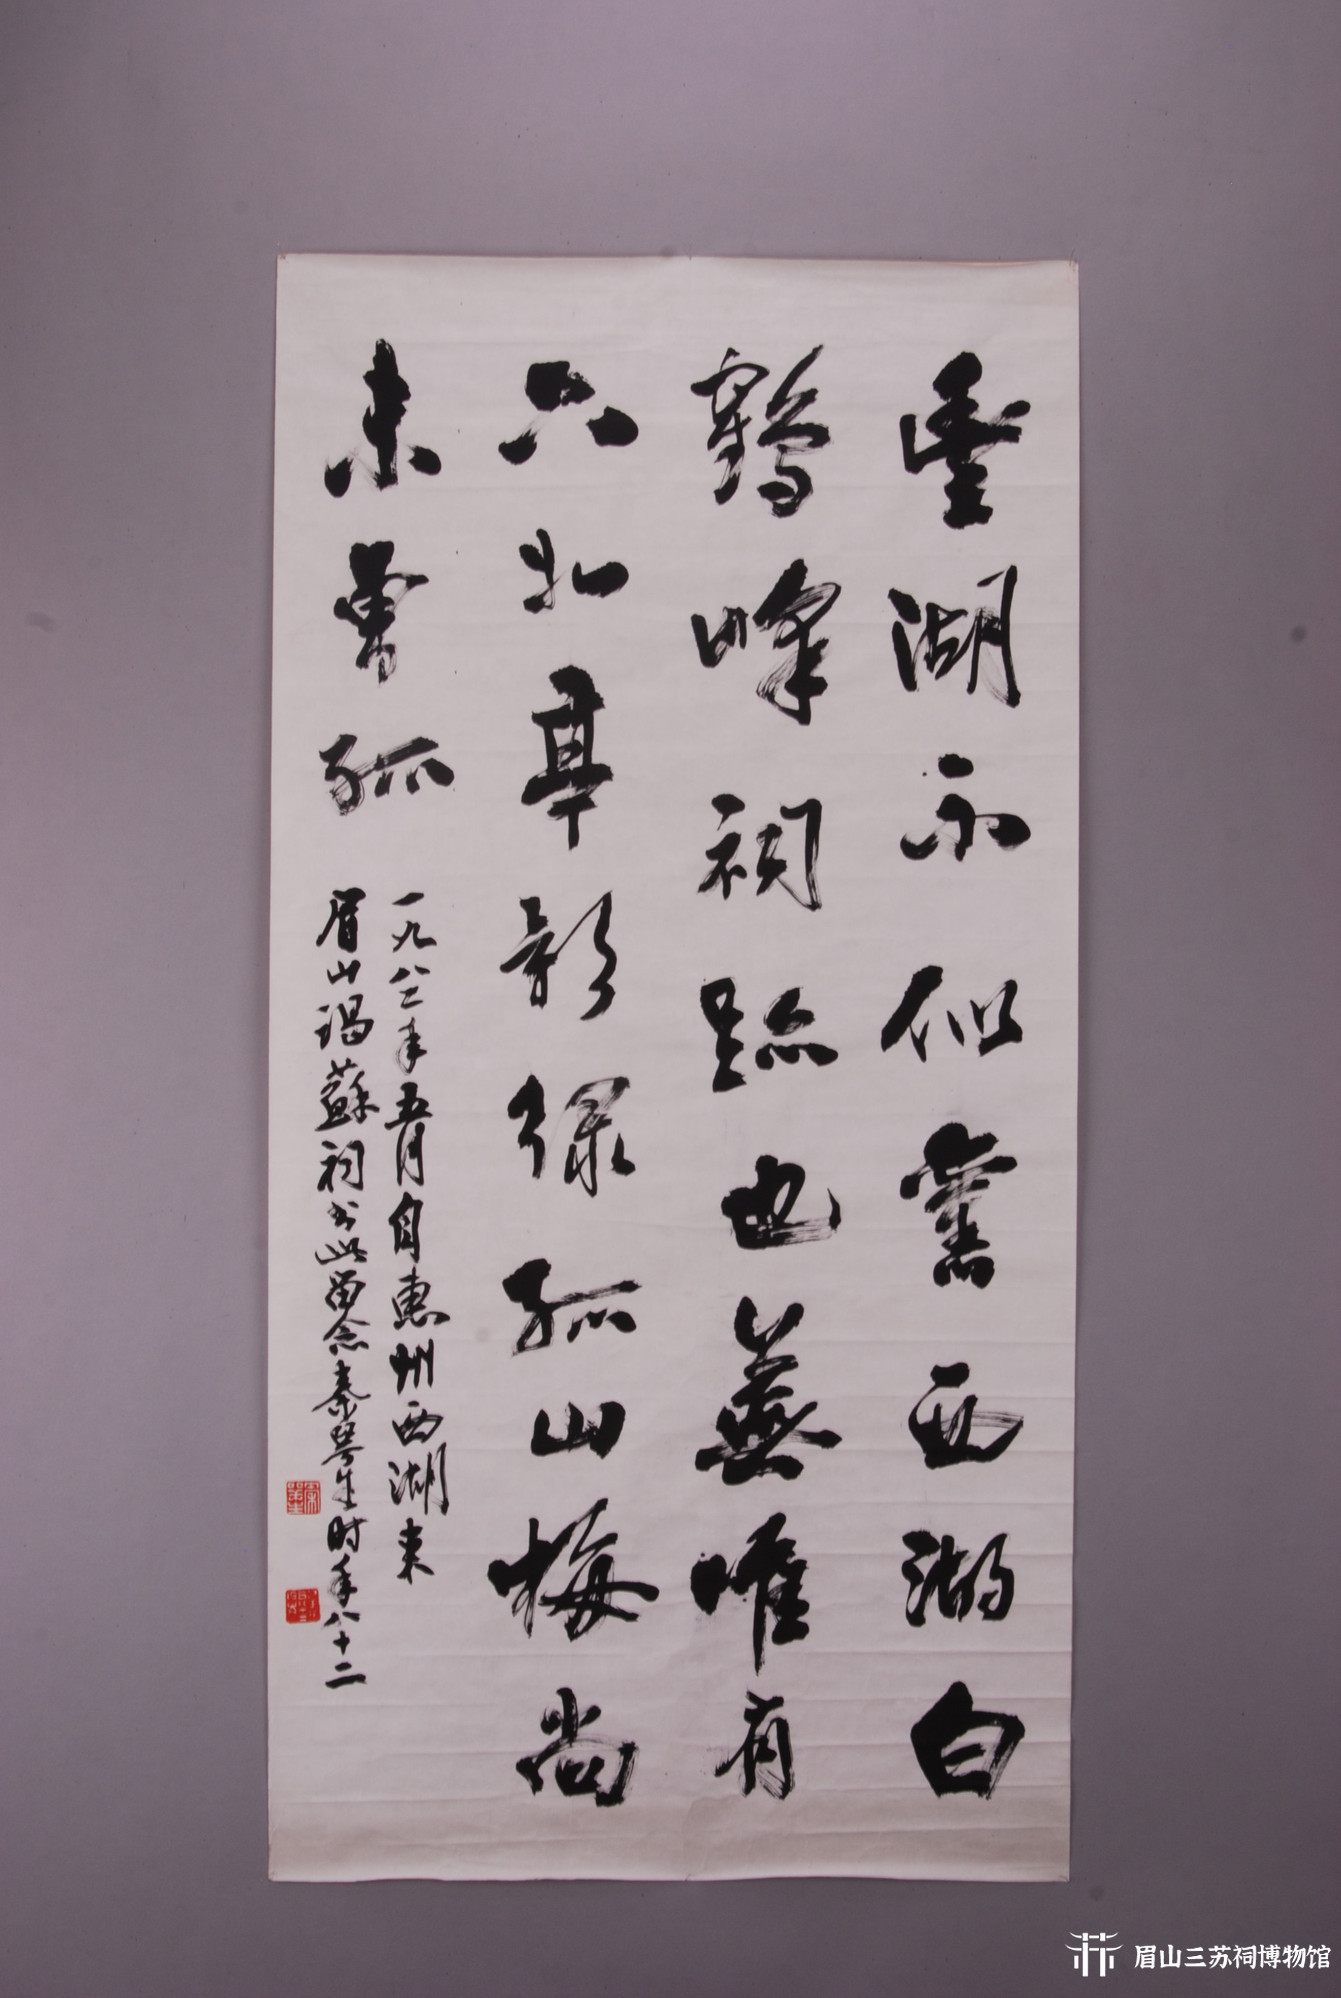 豐湖不似舊西湖白
鶴峰祠跡也蕪唯有
六如亭影緑孤山梅尚
未曾孤
一九八二年五月自惠州西湖来
眉山謁蘇祠书此留念秦咢生时年八十二
眉山三苏祠博物馆